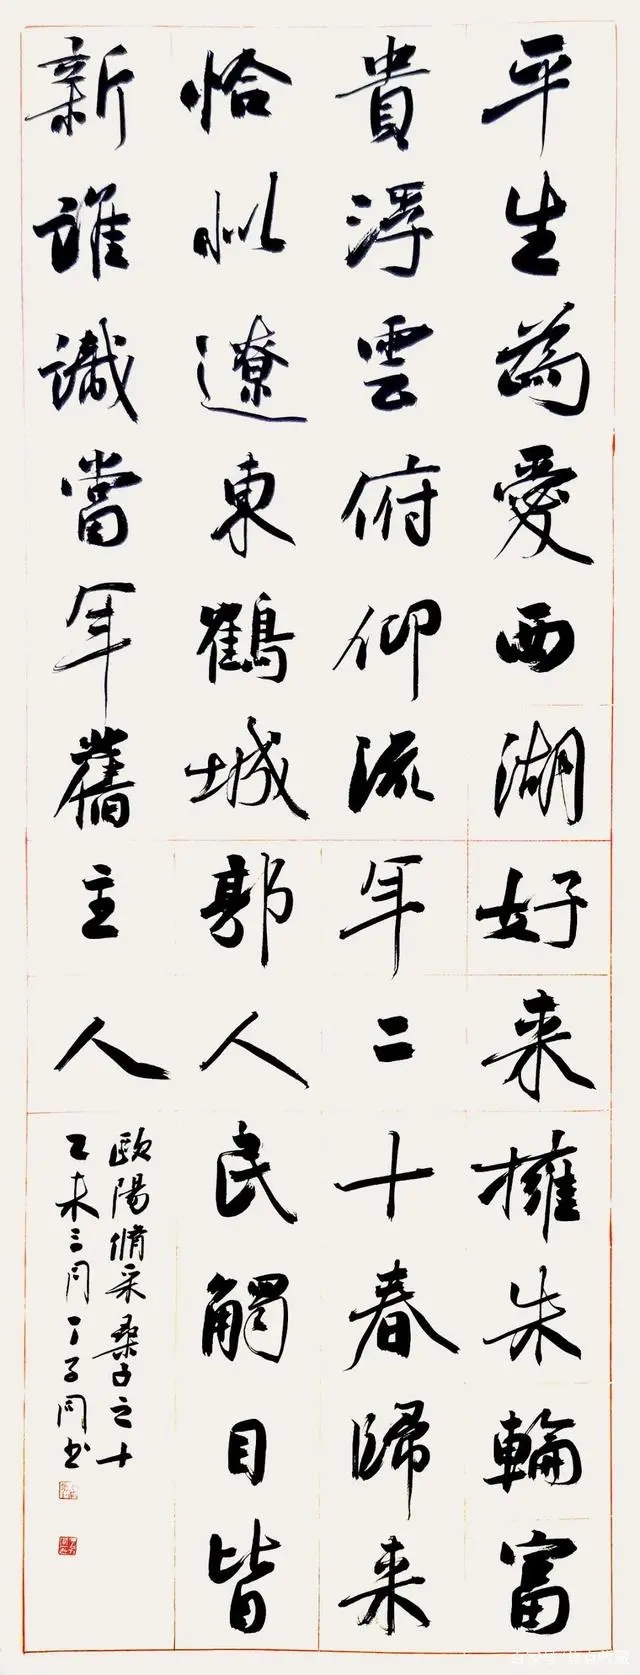 平生為愛西湖好来擁朱輪富
貴浮雲俯仰流年二十春歸来
恰似遼東鶴城郭人民觸目皆
新誰識當年舊主人
歐陽脩采桑子之十
乙未三月丁子同书